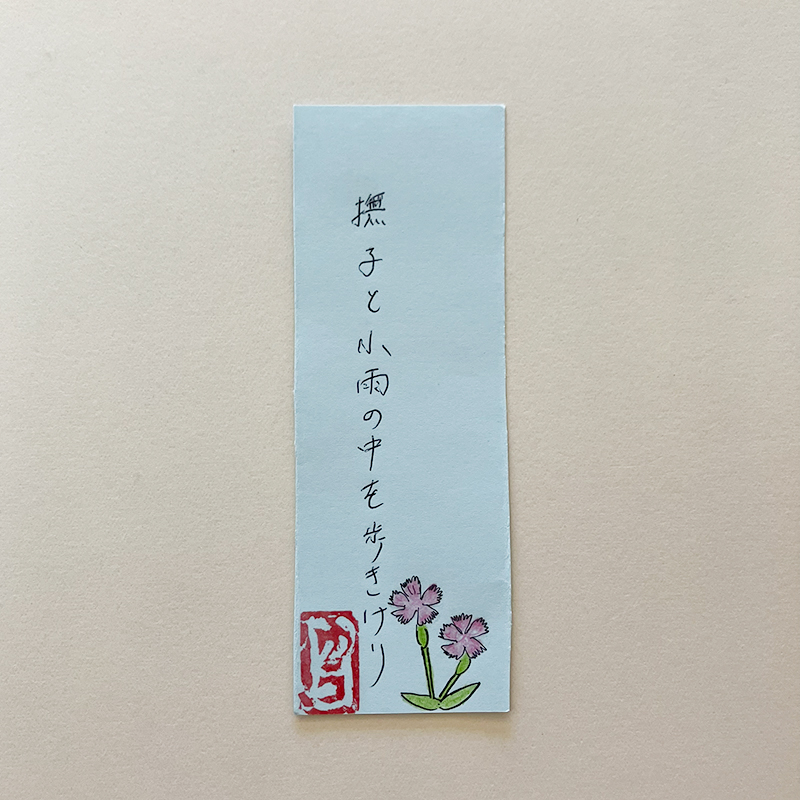 撫子と小雨の中を歩きけり